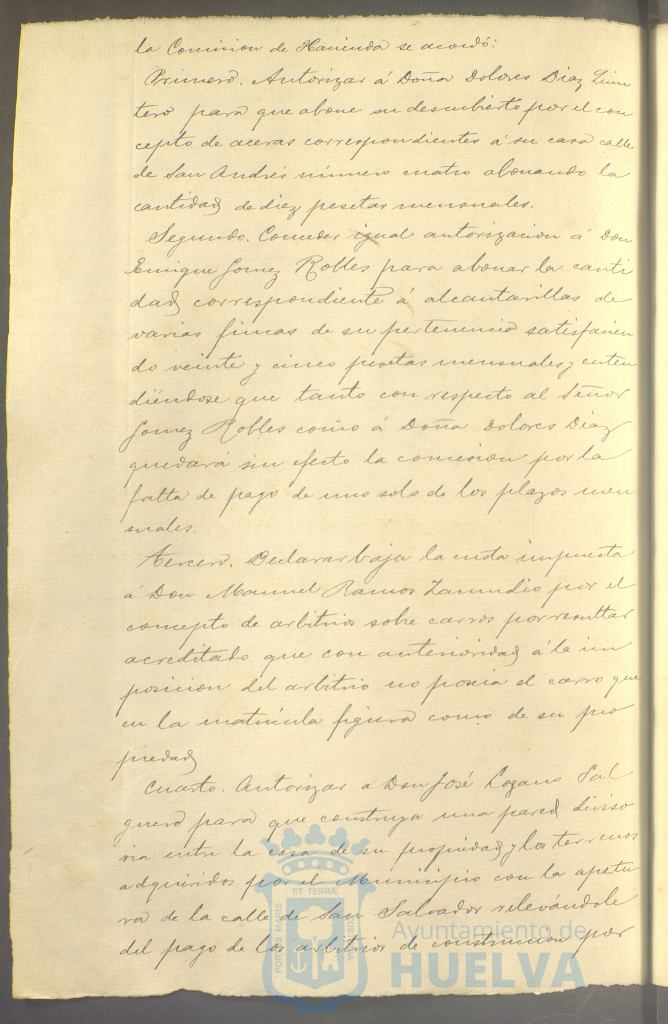 la Comision de Hacienda se acordó:
Primero. Autorizar á Doña Dolores Diaz Quin
tero para que abone su descubierto por el con
cepto de aceras correspondientes á su casa calle
de San Andrés número cuatro abonando la
cantidad de diez pesetas mensuales.
Segundo. Conceder igual autorizacion á Don
Enrique Gomez Robles para abonar la canti
dad correspondiente á alcantarillas de
varias fincas de su pertenencia satisfacien
do veinte y cinco pesetas mensuales, enten
diéndose que tanto con respecto al Señor
Gomez Robles como á Doña Dolores Diaz
quedará sin efecto la concesion por la
falta de pago de uno solo de los plazos men
suales.
Tercero. Declarar baja la cuota impuesta
á Don Manuel Ramos Zamudio por el
concepto de arbitrios sobre carros por resultar
acreditado que con anterioridad á la im
posicion del arbitrio no poseia el carro que
en la matricula figura como de su pro
piedad
Cuarto. Autorizar a Don José Lozano Sal
guero para que construya una pared diviso
ria entre la casa de su propiedad y los terrenos
adquiridos por el Municipio con la apertu
ra de la calle de San Salvador relevándole
del pago de los arbitrios de construccion por
PORTUS MARIS ET TERRAE CUSTODIA
Ayuntamiento de
HUELVA